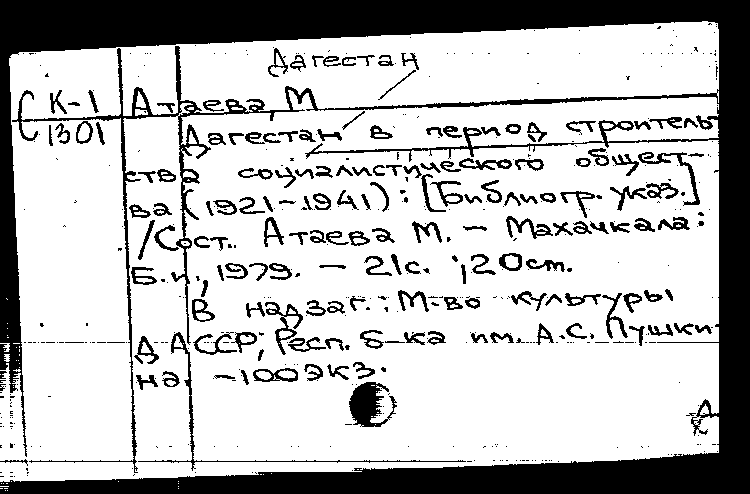 Дагестан
С К-1 Атаева, М
1301 Дагестан в период строитель-
ства социалистического общест-
ва (1921-1941): [Библиогр. указ.]
/Сост. Атаева М. - Махачкала:
Б.и., 1979. - 21с. ; 20 см.
В надзаг.: М-во культуры
ДАССР; Респ. б-ка им. А.С. Пушки-
на. - 100 экз.